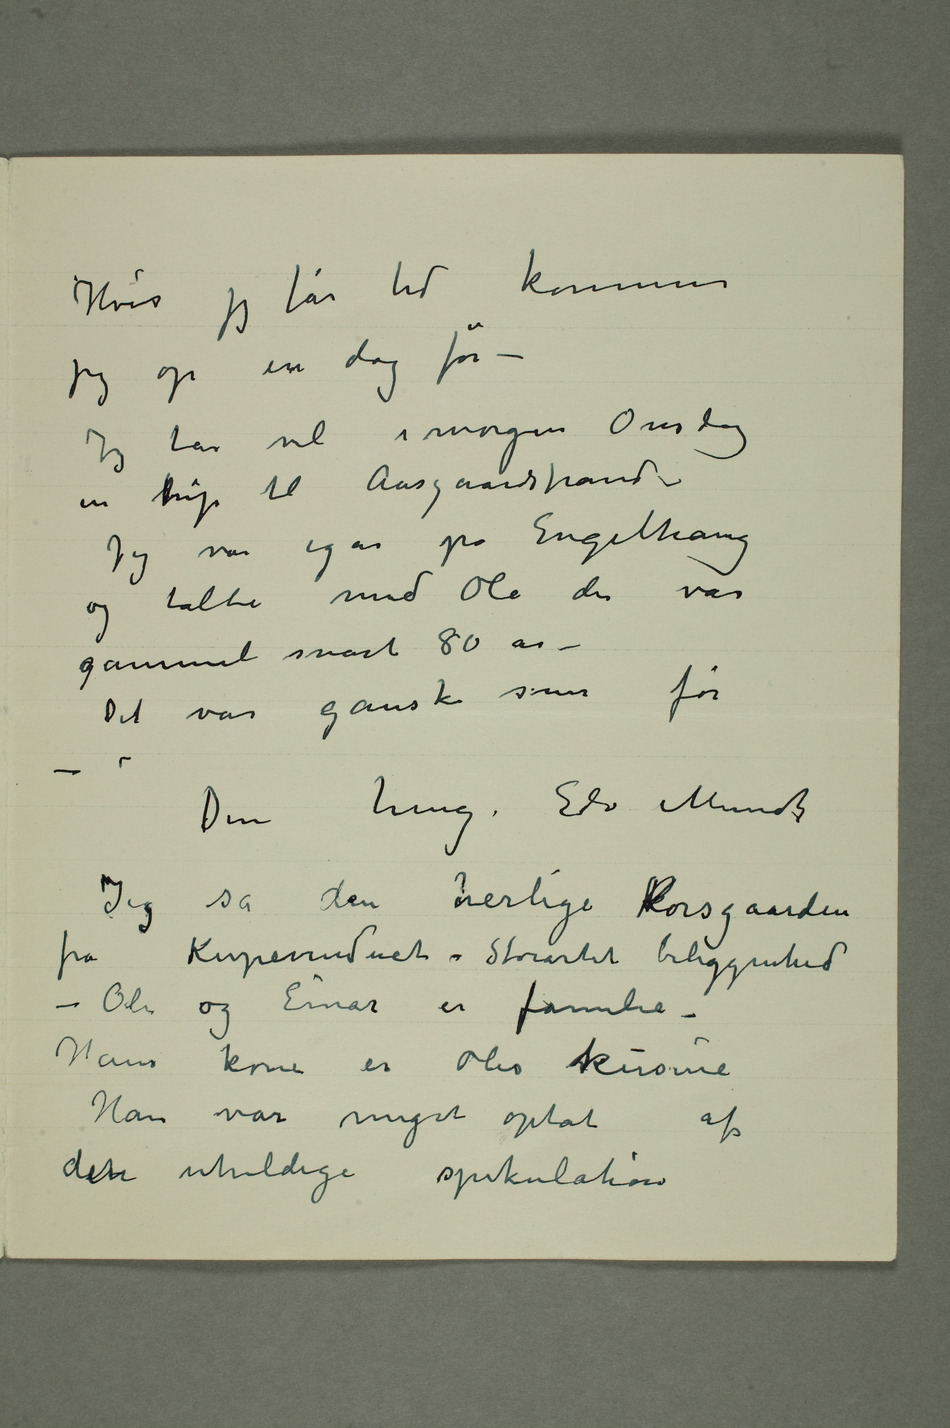 Hvis jeg får tid kommer
jeg op en dag før –
Jeg tar vel imorgen Onsdag
en trip til Aasgaardstrand –
Jeg var igår på Engelhaug
og talte med Ole der var
gammel snart 80 år –
Det var ganske som før
–
Din heng. Edv Munch
Jeg så den herlige Korsgaarden
fra Kupevinduet – Storartet beliggenhed
– Ole og Einar er familie –
Hans kone er Oles kusine
Han var meget optat af
den uheldige spekulation